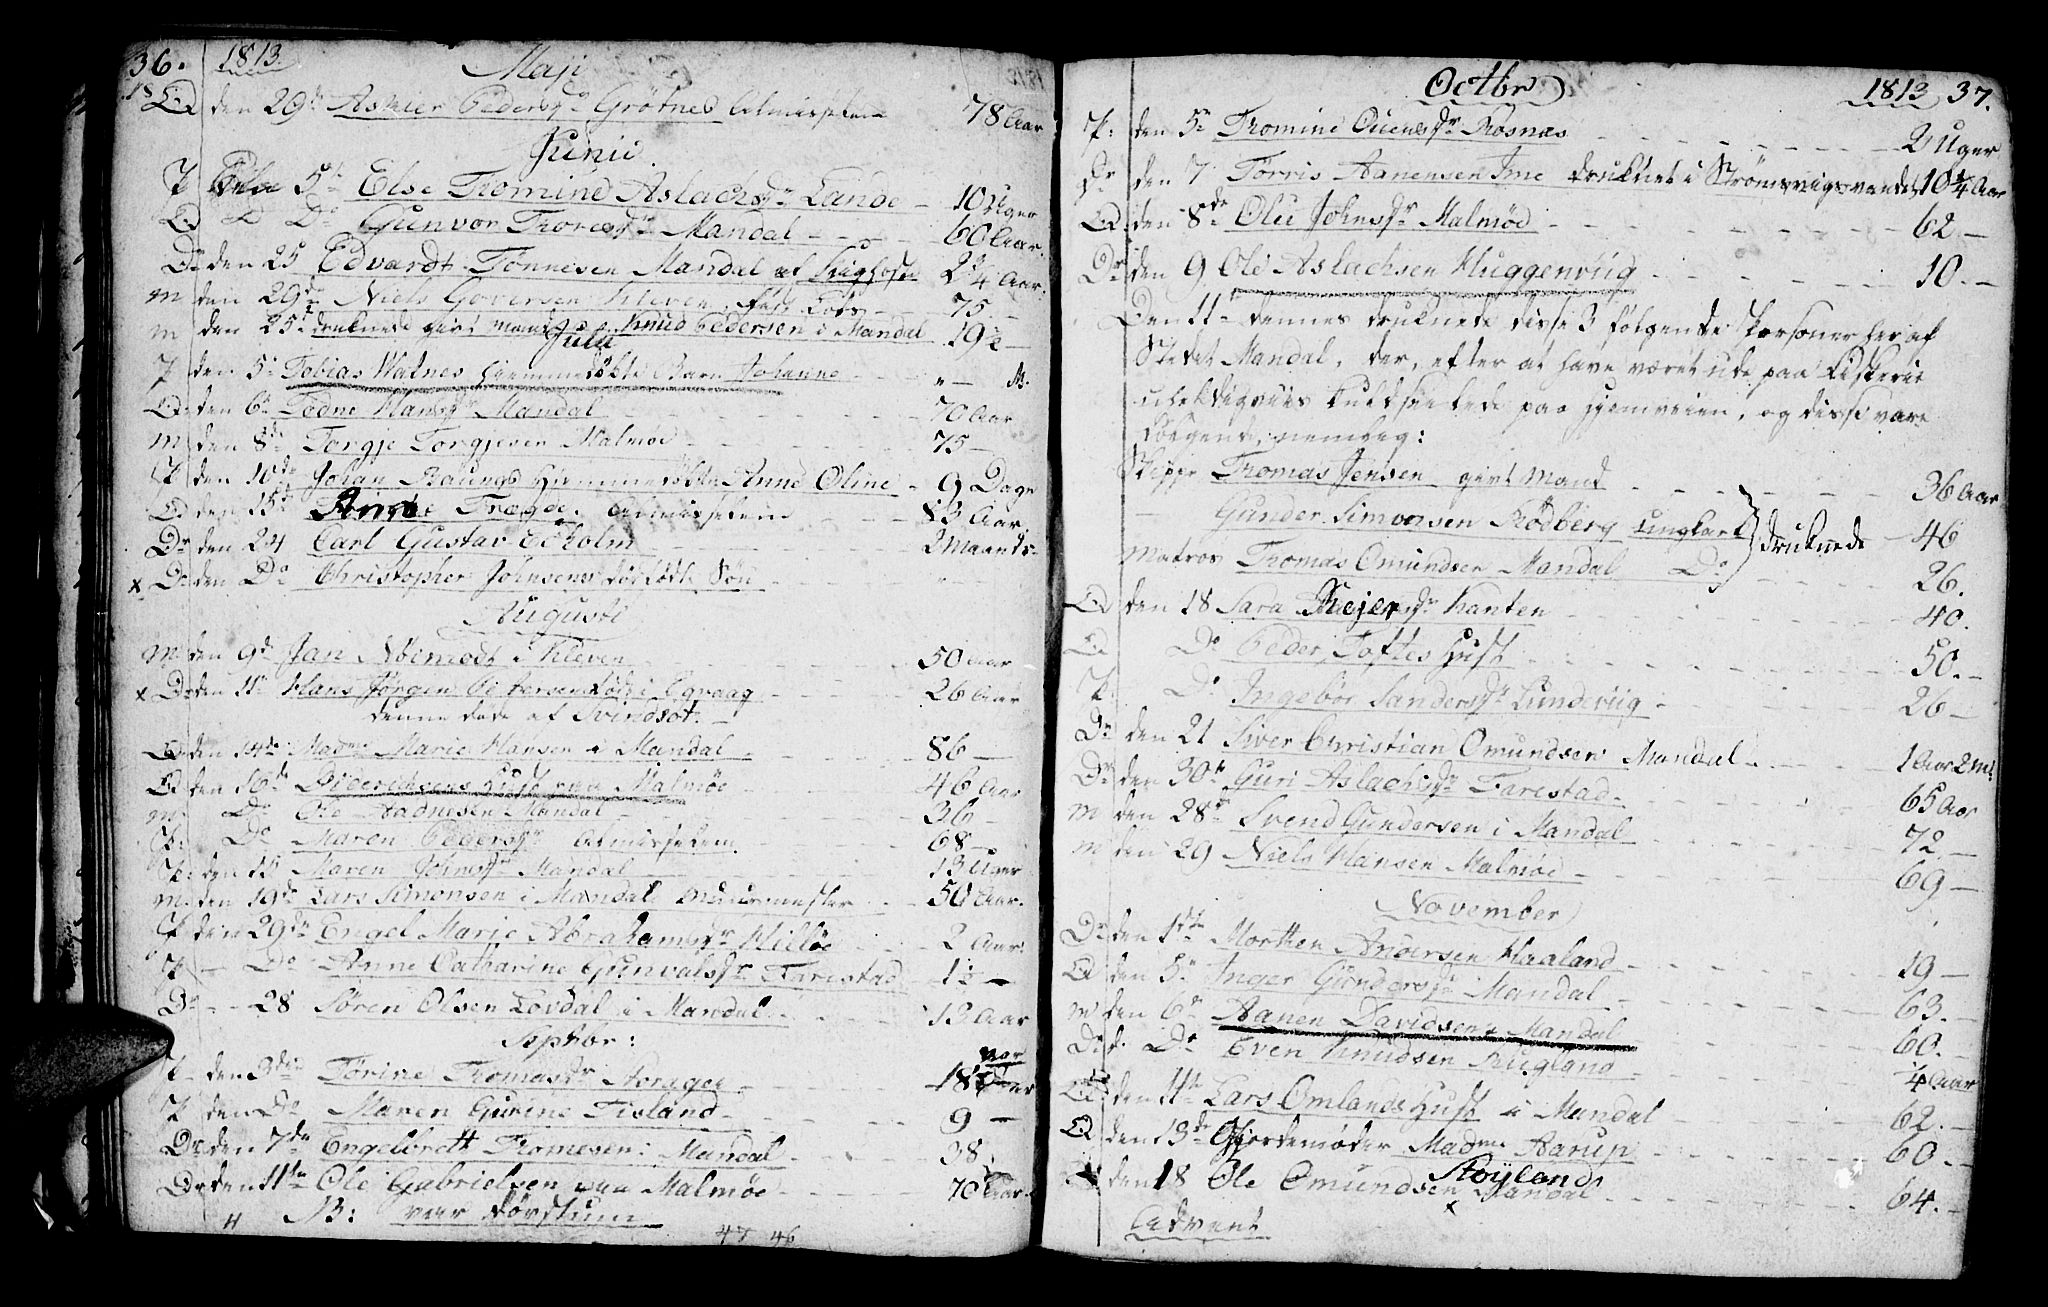 36. 1813.
Maji
Q den 29de Asmier Pedersdr Grötnes Almisselem 78 Aar
Junii
P den 5te Else Tromine Aslachsdr Lande - 10 Uger
Q Do Gunvor Toresdr Mandal - 60 Aar.
Dr den 25 Edvardt Tönnesen Mandal af 2 3/4 Aar.
m den 29de Niels Goversen Kleven, Lods 75 -
m den 25de druknede givt mand Knud Pedersen i Mandal 19 1/2 -
Julii
P den 5te Tobias Watnes hjemmedöbte Barn Johanne " -
Q den 6te Todne Hansdr Mandal 70 Aar
m den 8de Torgje Torgjesen Malmöe 75 -
P den 10de Johan Raungs hjemmedöbte Anne Oline - 9 Dage
Q den 15de Trægde. Almisselem 83 Aar.
Dr den 24 Carl Gustav Echolm 3 Maand
x Dr den Do Christopher Johnsens dödfödte Sön "
Augusti
m den 9de Jan i Kleven 50 Aar
x Dr den 11te Hans Jörgen Petersen föd i 26 Aar
denne döde af Svindsot. -
Q den 14de Madme Marie Hansen i Mandal 86 -
Q den 16de Diderichsens Hust paa Malmöe 46 Aar
m Do Ole Aadnesen Mandal 36 -
P. Do Maren Pedersdr Almisselem 68 -
P. den 15 Maren Johnsdr Mandal 13 Uger
m. den 19de Lars Simonsen i Mandal Muurmester 50 Aar.
P den 29de Engel Marie Abrahamsdr Hilløe 2 Aar
P - Do Anne Catharine Gunvalsdr Farestad 1 1/2 -
Dr - - 28 Sören Olsen Lovdal i Mandal 13 Aar
Septbr:
P - den 3die Törine Thomasdr 18 Uger
P den Do Maren Gurine Fisland 9 -
Dr den 7de Engelbrett Tromesen i Mandal 38
Dr den 11te Ole Gabrielsen paa Malmöe 70 Aar.
4 NB: var 47 46
Octbr 1813 37.
P: den 5te Tromine Ouensdr Rosnæs 2 Uger
Dr den 7 Törris Aanensen Ime druknet i Strömsvigsvandet 10 1/4 Aar
Q den 8de Olu Johnsdr Malmöe 62 -
Dr den 9 Ole Aslachsen Huggenviig 10. -
Den 11te dennes druknede disse 3 fölgende Personer her af
Stedet Mandal, der, efter at have været ude paa Fiskerie
uheldigviis kuldseilede paa hjemveien, og disse vare
fölgende, nemlig:
Skipper Tromas Jensen givt Mand 36 Aar
- Gunder Simonsen Rödberg ungkarl druknede 46
Matros Thomas Omundsen Mandal Do 26.
Q den 18 Sara Reiersdr Kanten 40.
Q Do Peder Toftes Hust 50. -
P. Do Ingebor Sandersdr Lundeviig 26 -
Dr den 21 Siver Christian Omundsen Mandal 1 Aar 2 m:
Dr den 30te Guri Aslachsdr Farestad 65 Aar
m den 28de Svend Gundersen i Mandal 72. -
m den 29 Niels Hansen Malmöe 69 -
November
Dr den 1ste Morthen Andersen Haaland 19 -
Q den 5te Inger Gundersdr Mandal 63. -
m den 6te Aanen Davidsen Mandal 60. -
Dr. Do Even Knudsen Rugland 4 Aar
Q den 11te Lars Omlands Hust i Mandal 62. -
Q den 13de Gjordemöder Madme Aarup 60. -
den 18 Ole Omundsen Mandal Röyland 64. -
Advent